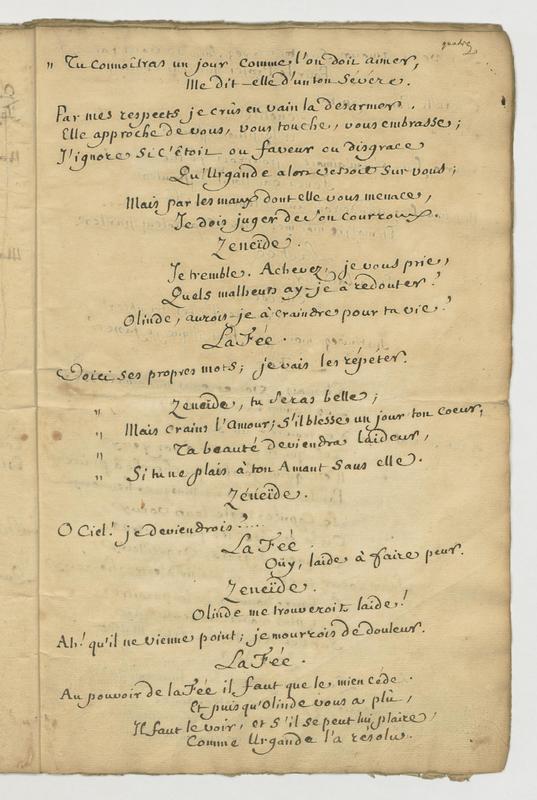 quatre
" Tu connoîtras un jour comme l'on doit aimer,
Me dit-elle d'un ton sévere.
Par mes respects je crûs en vain la desarmer.
Elle approche de vous, vous touche, vous embrasse;
J'ignore si c'étoit ou faveur ou disgrace
Qu'Urgande alors versoit sur vous;
Mais par les maux dont elle vous menace,
Je dois juger de son courroux.
Zeneïde.
Je tremble. Achevez, je vous prie,
Quels malheurs ay-je à redouter?
Olinde, aurois-je à craindre pour ta vie?
La Fée.
Voici ses propres mots; je vais les répéter.
" Zeneïde, tu seras belle;
" Mais crains l'Amour; s'il blesse un jour ton coeur,
" Ta beauté deviendra laideur,
" Si tu ne plais à ton Amant sans elle.
Zéneïde.
O Ciel! je deviendrois?....
La Fée.
Oüy, laide à faire peur.
Zeneïde.
Olinde me trouveroit laide!
Ah! qu'il ne vienne point; je mourrois de douleur.
La Fée.
Au pouvoir de la Fée il faut que le mien céde.
Et puisqu'Olinde vous a plû,
Il faut le voir, et s'il se peut lui plaire,
Comme Urgande l'a résolu.